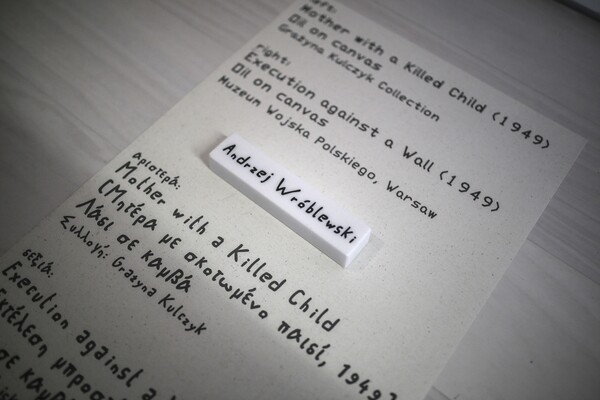 Mother with a Killed Child (1949)
Oil on canvas
Grażyna Kulczyk Collection
right:
Execution against a Wall (1949)
Oil on canvas
Muzeum Wojska Polskiego, Warsaw
Andrzej Wróblewski
αριστερά:
Mother with a Killed Child
(Μητέρα με σκοτωμένο παιδί, 1949)
Λάδι σε καμβά
Συλλογή: Grażyna Kulczyk
δεξιά:
Execution against a
σε